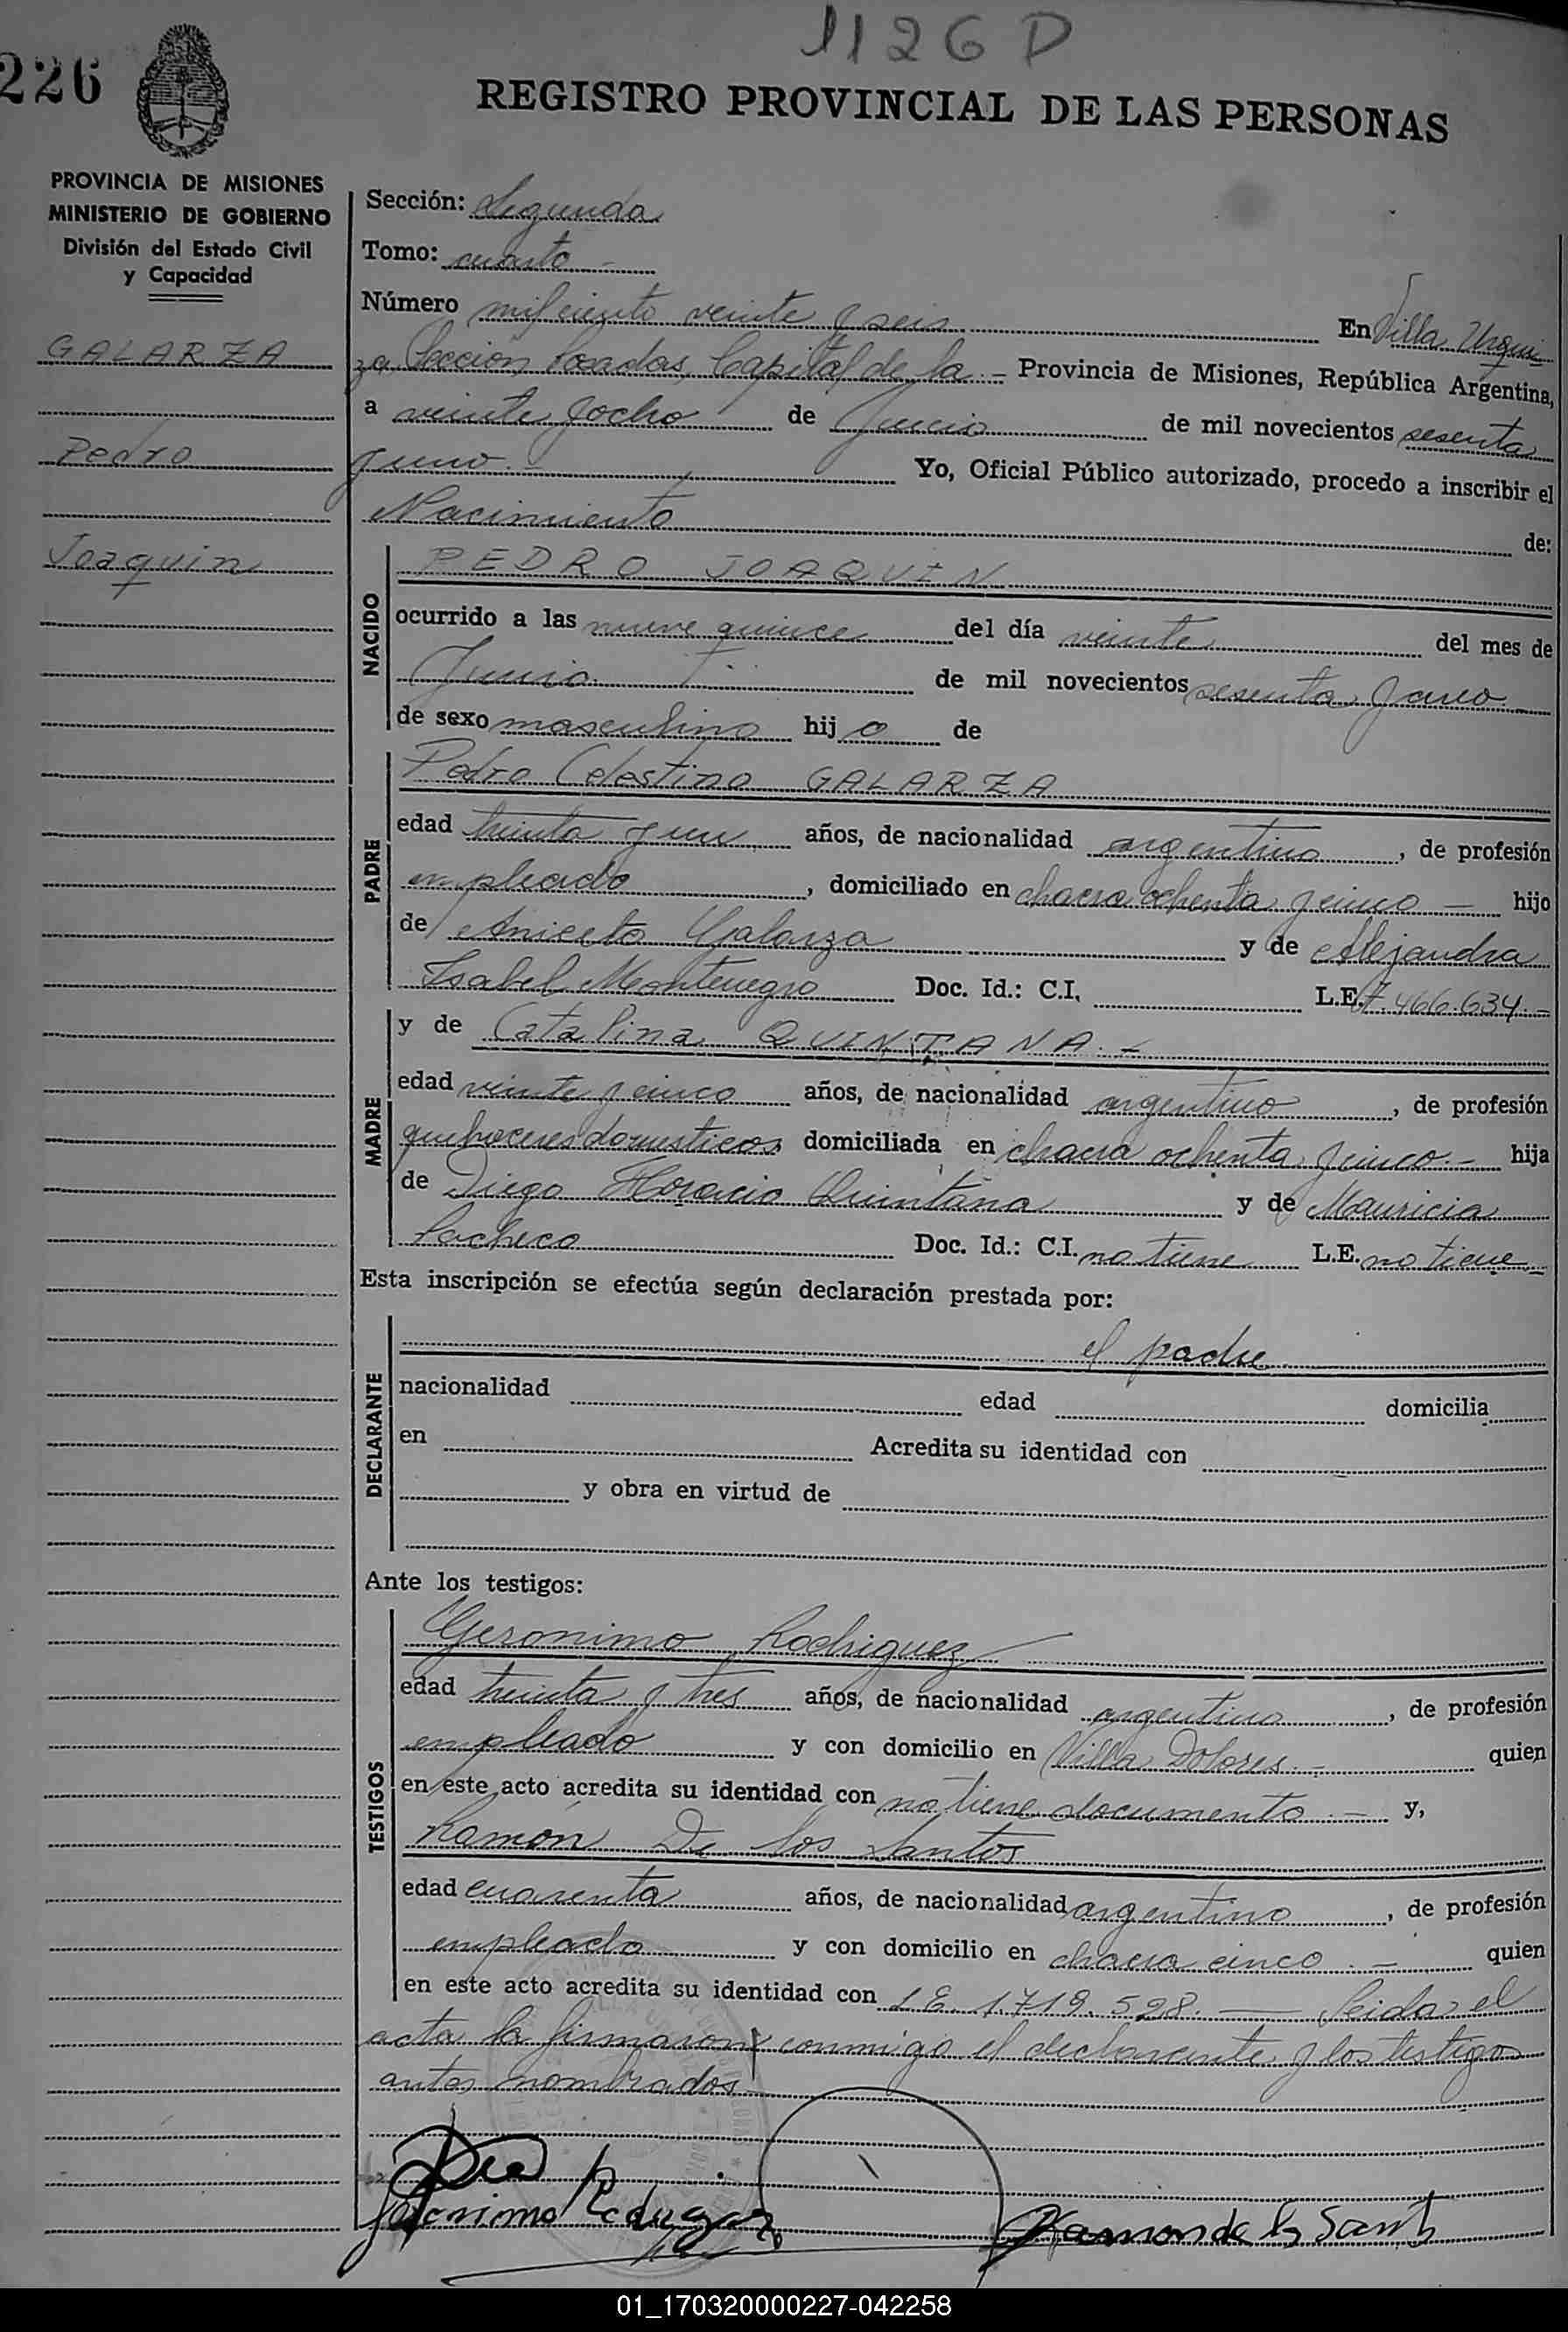 1126 D
226
REGISTRO PROVINCIAL DE LAS PERSONAS
PROVINCIA DE MISIONES
MINISTERIO DE GOBIERNO
División del Estado Civil
y Capacidad
GALARZA
Pedro
Joaquin
Sección: Segunda
Tomo: cuarto -
Número mil ciento veinte y seis En Villa Urqui
za Sección Posadas, Capital de la - Provincia de Misiones, República Argentina,
a veinte y ocho de Junio de mil novecientos sesenta
y uno.- Yo, Oficial Público autorizado, procedo a inscribir el
Nacimiento de:
NACIDO
PEDRO JOAQUIN
ocurrido a las nueve quince del día veinte del mes de
Junio de mil novecientos sesenta y uno
de sexo masculino hij o de
PADRE
Pedro Celestino GALARZA
edad treinta y un años, de nacionalidad argentino, de profesión
empleado, domiciliado en chacra ochenta y cinco - hijo
de Aniceto Galarza y de Alejandra
Isabel Montenegro Doc. Id.: C.I. L.E. 7.466.634.-
MADRE
y de Catalina QUINTANA.-
edad veinte y cinco años, de nacionalidad argentino, de profesión
quehaceres domesticos domiciliada en chacra ochenta y cinco.- hija
de Diego Horacio Quintana y de Mauricia
Pacheco Doc. Id.: C.I. no tiene L.E. no tiene
Esta inscripción se efectúa según declaración prestada por:
DECLARANTE
el padre
nacionalidad edad domicilia
en Acredita su identidad con
y obra en virtud de
Ante los testigos:
TESTIGOS
Geronimo Rodriguez
edad treinta y tres años, de nacionalidad argentino, de profesión
empleado y con domicilio en Villa Dolores.- quien
en este acto acredita su identidad con no tiene documento.- y,
Ramón De los Santos
edad cuarenta años, de nacionalidad argentino, de profesión
empleado y con domicilio en chacra cinco.- quien
en este acto acredita su identidad con L.E. 1.719.528.- Leida el
acta la firmaron conmigo el declarante y los testigos
antes nombrados
Ramon de los Sant
01_170320000227-042258